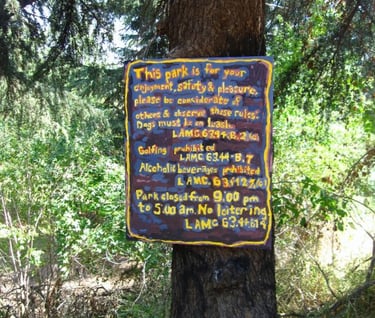 This park is for your
enjoyment, safety & pleasure,
please be considerate of
others & observe these rules:
Dogs must be on leash.
LAMC 63.44-B.2(a)
Golfing prohibited
LAMC 63.44-B.7
Alcoholic beverages prohibited
LAMC. 63.44
Park closed from 9:00 pm
to 5:00 am. No loitering
LAMC 63.44-B14